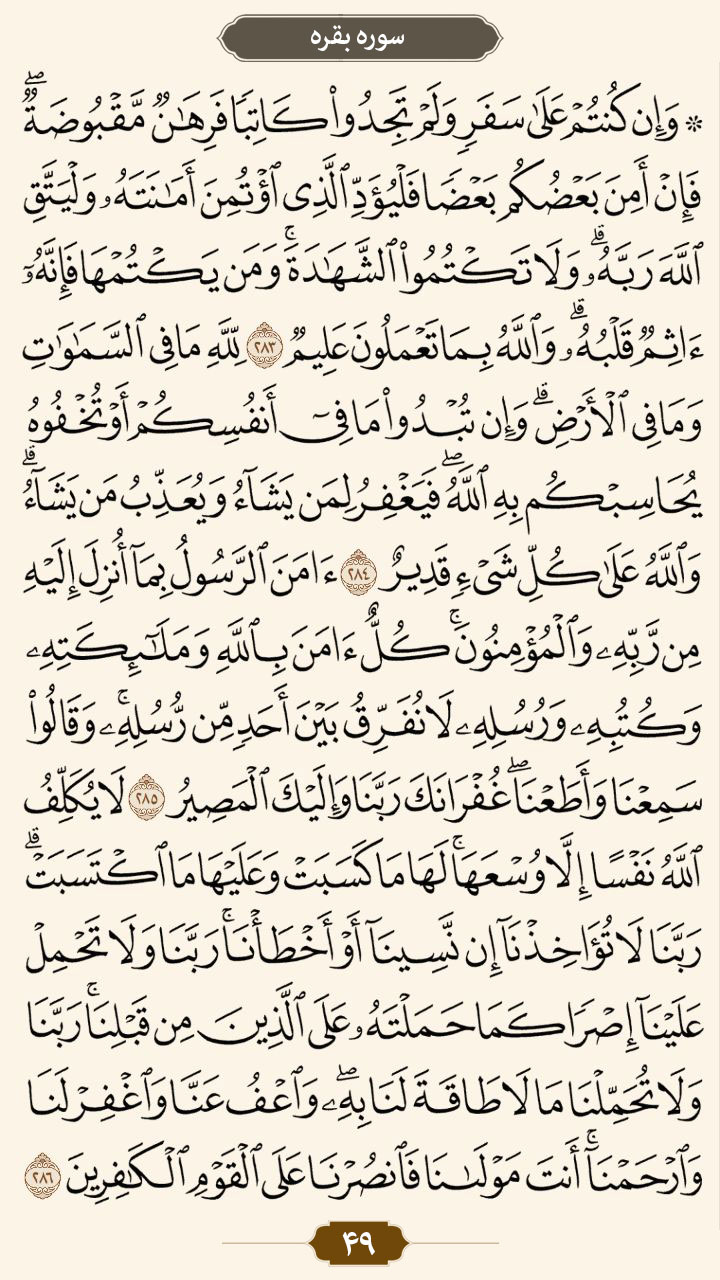 سوره بقره
۞ وَإِن كُنتُمْ عَلَىٰ سَفَرٍ وَلَمْ تَجِدُوا۟ كَاتِبًا فَرِهَـٰنٌ مَّقْبُوضَةٌ ۖ
فَإِنْ أَمِنَ بَعْضُكُم بَعْضًا فَلْيُؤَدِّ ٱلَّذِى ٱؤْتُمِنَ أَمَـٰنَتَهُۥ وَلْيَتَّقِ
ٱللَّهَ رَبَّهُۥ ۗ وَلَا تَكْتُمُوا۟ ٱلشَّهَـٰدَةَ ۚ وَمَن يَكْتُمْهَا فَإِنَّهُۥٓ
ءَاثِمٌ قَلْبُهُۥ ۗ وَٱللَّهُ بِمَا تَعْمَلُونَ عَلِيمٌ ٢٨٣ لِّلَّهِ مَا فِى ٱلسَّمَـٰوَٰتِ
وَمَا فِى ٱلْأَرْضِ ۗ وَإِن تُبْدُوا۟ مَا فِىٓ أَنفُسِكُمْ أَوْ تُخْفُوهُ
يُحَاسِبْكُم بِهِ ٱللَّهُ ۖ فَيَغْفِرُ لِمَن يَشَآءُ وَيُعَذِّبُ مَن يَشَآءُ ۗ
وَٱللَّهُ عَلَىٰ كُلِّ شَىْءٍ قَدِيرٌ ٢٨٤ ءَامَنَ ٱلرَّسُولُ بِمَآ أُنزِلَ إِلَيْهِ
مِن رَّبِّهِۦ وَٱلْمُؤْمِنُونَ ۚ كُلٌّ ءَامَنَ بِٱللَّهِ وَمَلَـٰٓئِكَتِهِۦ
وَكُتُبِهِۦ وَرُسُلِهِۦ لَا نُفَرِّقُ بَيْنَ أَحَدٍ مِّن رُّسُلِهِۦ ۚ وَقَالُوا۟
سَمِعْنَا وَأَطَعْنَا ۖ غُفْرَانَكَ رَبَّنَا وَإِلَيْكَ ٱلْمَصِيرُ ٢٨٥ لَا يُكَلِّفُ
ٱللَّهُ نَفْسًا إِلَّا وُسْعَهَا ۚ لَهَا مَا كَسَبَتْ وَعَلَيْهَا مَا ٱكْتَسَبَتْ ۗ
رَبَّنَا لَا تُؤَاخِذْنَآ إِن نَّسِينَآ أَوْ أَخْطَأْنَا ۚ رَبَّنَا وَلَا تَحْمِلْ
عَلَيْنَآ إِصْرًا كَمَا حَمَلْتَهُۥ عَلَى ٱلَّذِينَ مِن قَبْلِنَا ۚ رَبَّنَا
وَلَا تُحَمِّلْنَا مَا لَا طَاقَةَ لَنَا بِهِۦ ۖ وَٱعْفُ عَنَّا وَٱغْفِرْ لَنَا
وَٱرْحَمْنَآ ۚ أَنتَ مَوْلَىٰنَا فَٱنصُرْنَا عَلَى ٱلْقَوْمِ ٱلْكَـٰفِرِينَ ٢٨٦
۴۹